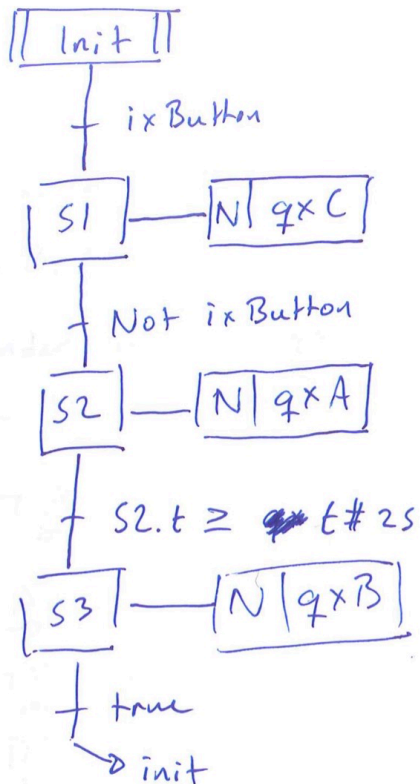 Init
ixButton
S1 N qxC
Not ixButton
S2 N qxA
S2.t ≥ t#2s
S3 N qxB
true
init